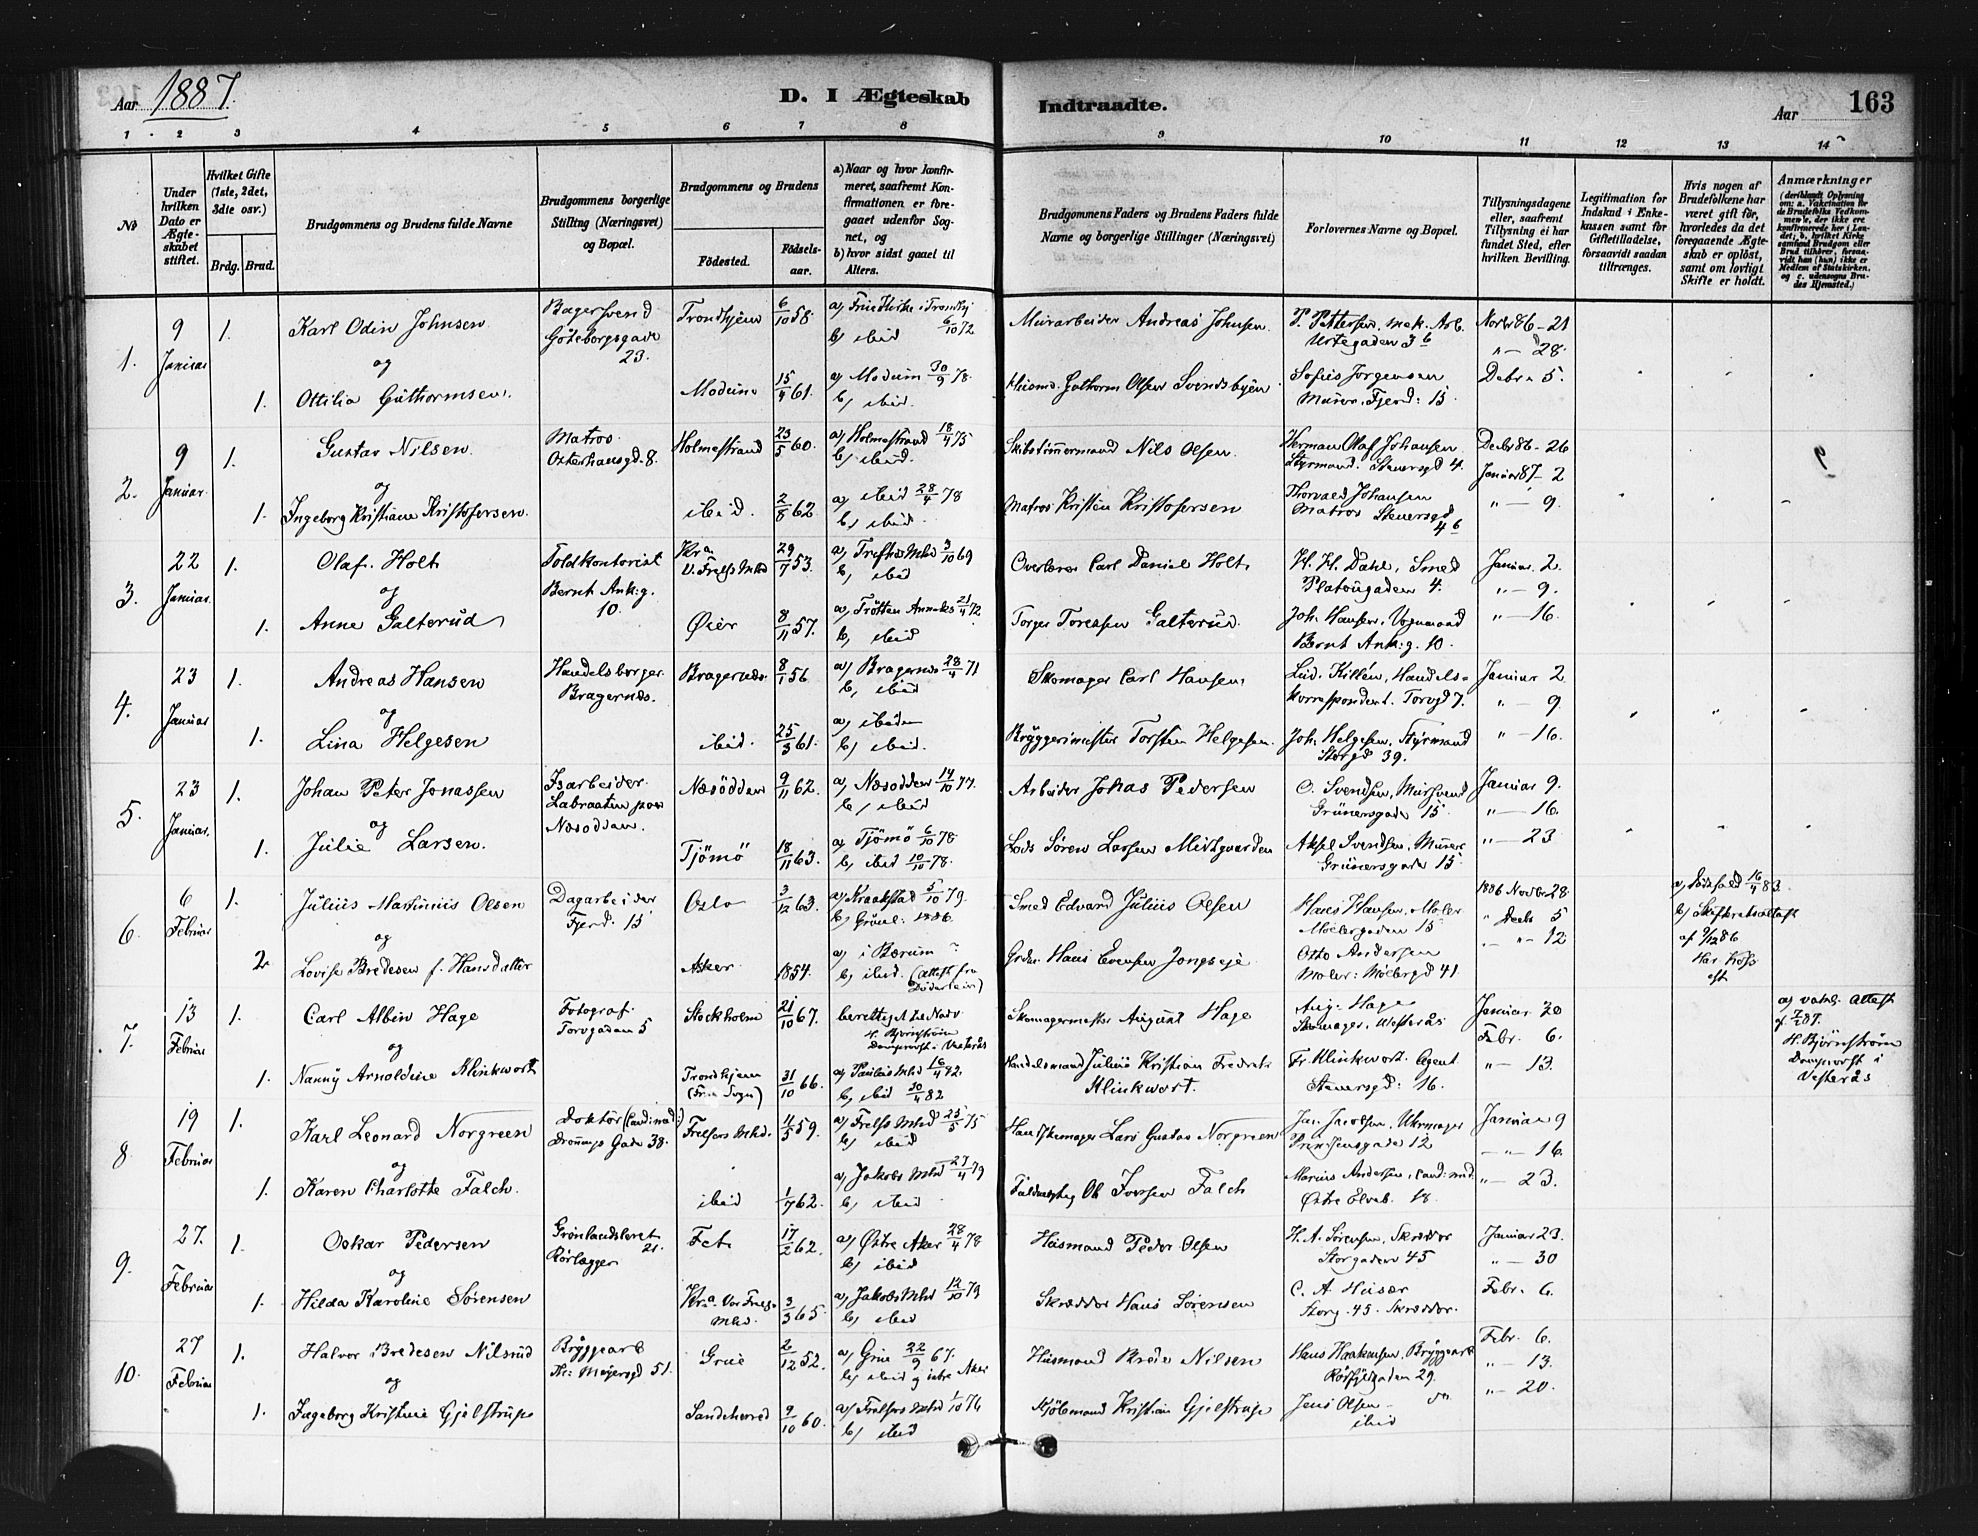 Aar 1887.
D. I Ægteskab
Indtraadte.
Aar
163
1 2 3 4 5 6 7 8 9 10 11 12 13 14
No
Under hvilken Dato er Ægteskabet stiftet.
Hvilket Gifte (1ste, 2det, 3die osv.)
Brdg. Brud.
Brudgommens og Brudens fulde Navne
Brudgommens borgerlige Stilling (Næringsvei) og Bopæl.
Brudgommens og Brudens
Födested.
Födselsaar.
a) Naar og hvor konfirmeret, saafremt Konfirmationen er foregaaet udenfor Sognet, og
b) hvor sidst gaaet til Alters.
Brudgommens Faders og Brudens Faders fulde Navne og borgerlige Stillinger (Næringsvei)
Forlovernes Navne og Bopæl.
Tillysningsdagene eller, saafremt Tillysning ei har fundet Sted, efter hvilken Bevilling.
Legitimation for Indskud i Enkekassen samt for Giftetilladelse, forsaavidt saadan tiltrænges.
Hvis nogen af Brudefolkene har været gift för, hvorledes da det foregaaende Ægteskab er oplöst, samt om lovligt Skifte er holdt.
Anmærkninger
1. 9 Januar 1. Karl Odin Johnsen Bagersvend Göteborgsgade 23. Trondhjem 6/10 58. a) Frue Kirke i Trondhj 6/10 72 b) ibid Murarbeider Andreas Johnsen. P. Pettersen, mek. Arb. Urtegaden 36 Novbr 86 - 21
" - 28.
og
1. Ottilia Guthormsen. Modum 15/4 61. a) Modum 30/9 78. b) ibid. Guthorm Olsen Svendsbyen Sofus Jörgensen Murer. Fjerd: 15 Debr 5.
2. 9 Januar 1. Gustav Nilsen. Matros Osterhausgd. 8. Holmestrand 23/5 60. a) Holmestrand 18/4 75 b) ibid. Skibstömmermand Nils Olsen. Herman Olaf Johansen Styrmand. Stenersgd 4. Decbr 86 - 26
Januar 87 - 2
og
1. Ingeborg Kristiane Kristofersen. ibid. 2/8 62. a) ibid 28/4 78 b) ibid. Matros Kristen Kristofersen Thorvald Johansen Matros Stenersgd 46 " - 9.
3. 22 Januar. 1. Olaf Holt Toldkontorist Bernt Ank: g. 10. Kra V. Frels Mhd 29/7 53. a) Trefold. Mhd 3/10 69 b) ibid Overlærer Carl Daniel Holt. H. H. Dahl, Smed Platöugaden 4. Januar 2.
" - 9.
og
1. Anne Galterud Öier 8/11 57. a) Trötten Anneks 21/4 72. b) ibid Torger Toresen Galterud. Joh. Hansen, Vognmand Bernt Ank: g. 10. " - 16.
4. 23 Januar 1. Andreas Hansen Handelsborger Bragernæs. Bragernæs. 8/1 56 a) Bragernæs 28/4 71 b) ibid Skomager Carl Hansen. Lud. Killén, Handelskorrespondent. Torvgd 7. Januar 2
" - 9
og
1. Lina Helgesen ibid. 25/3 61. a) ibidem b) ibid. Bryggerimester Torsten Helgesen. Joh. Helgesen, Styrmand Storgd 39. " - 16.
5. 23 Januar. 1. Johan Peter Jonassen Isarbeider. Labraaten paa Næsodden. Næsödden 9/11 62. a) Næsodden 14/10 77. b) ibid Arbeider Johas Pedersen O. Svendsen, Mursvend Grünersgade 15 Januar 9.
" - 16.
og
1. Julie Larsen. Tjömö 18/11 63. a) Tjömö 6/10 78 b) ibid 10/10 78. Lods Sören Larsen Midtgaarden Aksel Svendsen, Murer Grünersgade 15 " - 23
6. 6 Februar 1. Julius Martinius Olsen Dagarbeider Fjerd. 15 Oslo 3/12 63. a) Kraakstad 5/10 79. b) Grönl. 1886. Smed Edvard Julius Olsen Hans Hansen, Maler Möllergaden 15 1886 Novbr 28.
" Decbr 5
a) Dödsfald 16/4 83.
b) Skifteretsattest af 9/12 86
og
2. Lovise Bredesen f. Hansdatter Asker. 1854. a) i Bærum ? b) ibid. (attest fra Döderlein) Hans Evensen Jongseje Otto Andersen Maler: Möllergd 41. " - 12
7. 13 Februar 1. Carl Albin Hage Fotograf. Torvgaden 5 Stockholm 21/10 67. Skomagermester August Hage Aug. Hage Skomager, Westerås Januar 30
Febr. 6.
a) vakc. attest af 7/2 87. H. Björnström Domprovst i Vesterås
og
1. Nanny Arnoldine Klinkwort Trondhjem (Frue Sogn) 31/10 66. a) Paulus Mhd 16/4 82. b) ibid 30/4 82 Handelsmand Julius Kristian Fredrik Klinkwort. Fr. Klinkwort. Agent Stenersgd: 16. " - 13.
8. 19 Februar 1. Karl Leonard Norgreen Doktör (Cand: med:) Dronnings Gade 38. Frelsers Mhd. 4/5 59. a) Frelsers Mhd 25/5 75 b) ibid Lars Gustav Norgreen Jac. Jacobsen, Uhrmager Prindsensgade 12 Januar 9
" - 16.
og
1. Karen Charlotte Falch. ibid 1/7 62. a) Jakobs Mhd 27/4 79 b) ibid Ol. Iversen Falch Marius Andersen, Cand: med. Östre Elveb. 18. " - 23.
9. 27. Februar 1. Oskar Pedersen Grönlandsleret 21. Rörlægger Fet. 17/2 62. a) Östre Aker 28/4 78 b) ibid Husmand Peder Olsen H. A. Sörensen, Skrædder Storgaden 45 Januar 23.
" - 30
og
1. Hilda Karoline Sörensen Kra Vor Frels. Mhd. 3/3 65. a) Jakobs Mhd 12/10 79 b) ibid Skrædder Hans Sörensen C. A. Husær Storg. 45. Skrædder. Febr. 6.
10. 27 Februar 1. Halvor Bredesen Nilsrud Bryggearb Th: Meyersgd 51. Grue 2/12 52. a) Grue 22/9 67. b) ibid og östre Aker Husmand Brede Nilsen Hans Haakensen, Bryggearb Rörsgdgaden 29. Febr. 6.
" - 13.
og
1. Ingeborg Kristine Gjelstrup Sandeherred 9/10 60. a) Frelsers Mhd 1/10 76 b) ibid Kjöbmand Kristian Gjelstrup Jens Olsen ibid " - 20.